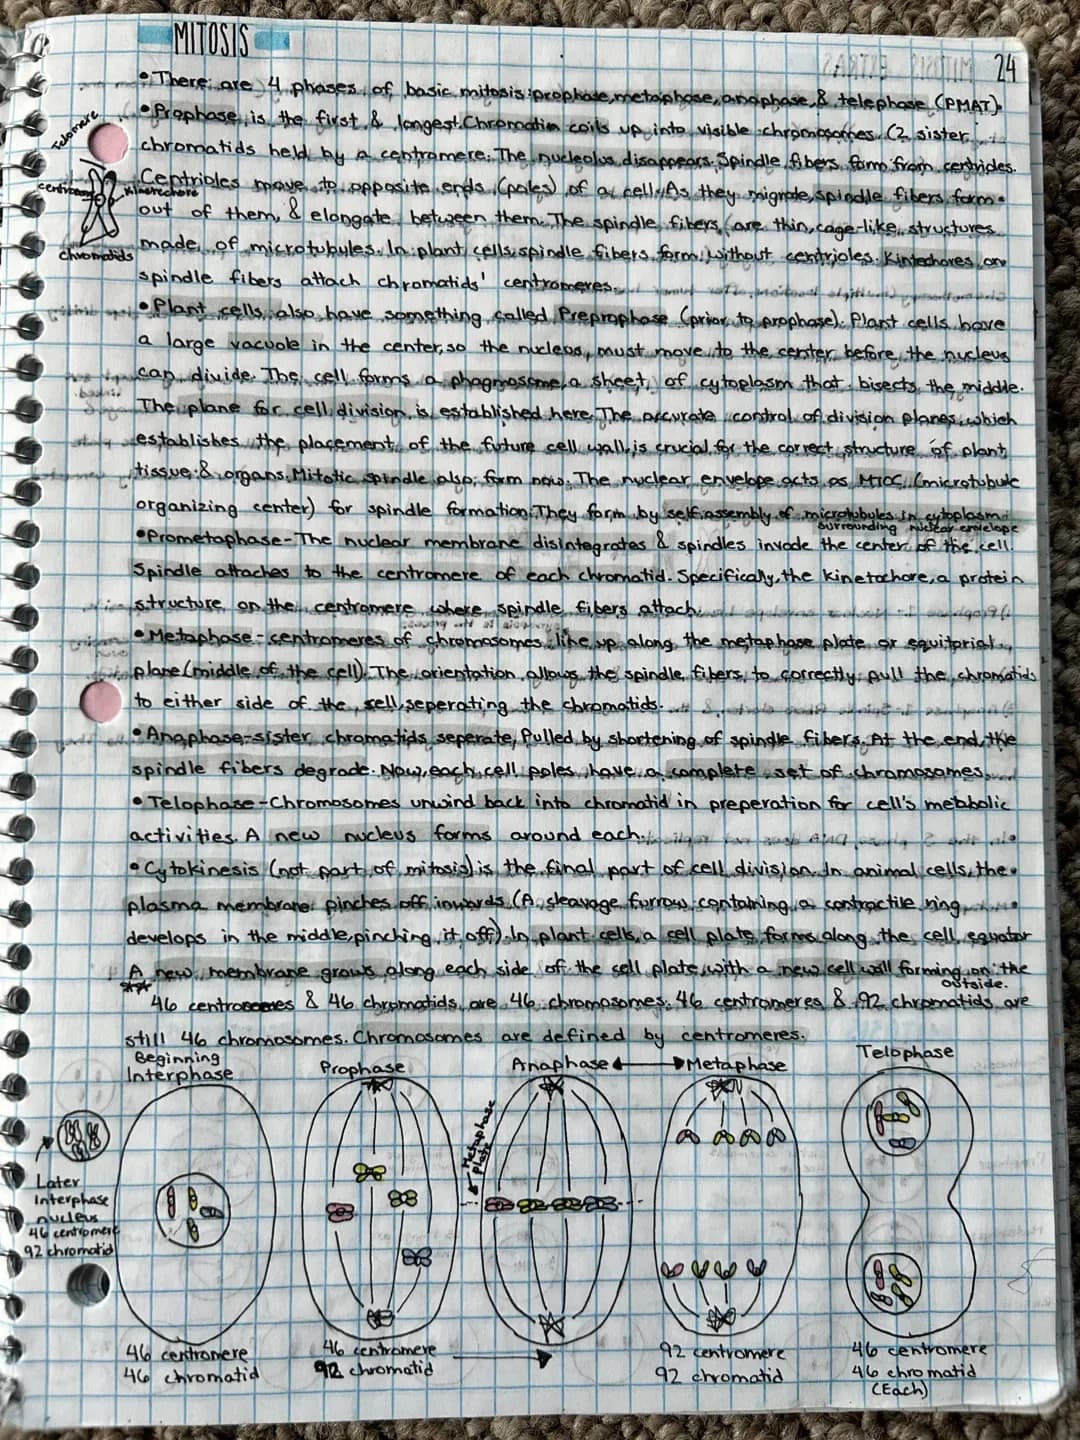 MITOSIS
24
• There are 4 phases of basic mitosis: prophase, metaphase, anaphase, & telephase (PMAT)
• Prophase is the first & longest. Chromatin coils up into visible chromosomes (2 sister
chromatids held by a centromere. The nucleolus disappears. Spindle fibers form from centrioles.
Centrioles move to opposite ends (poles) of a cell. As they migrate, spindle fibers form
out of them, & elongate between them. The spindle fibers are thin, cage-like structures
made of microtubules. In plant cells, spindle fibers form without centrioles. Kinetechores on
spindle fibers attach chromatids' centromeres.
Telomere
centromere
kinetechore
chromatids
• Plant cells also have something called Preprophase (prior to prophase). Plant cells have
a large vacuole in the center, so the nucleus must move to the center before the nucleus
can divide. The cell forms a phagmosome, a sheet of cytoplasm that bisects the middle.
The plane for cell division is established here. The accurate control of division planes, which
establishes the placement of the future cell wall, is crucial for the correct structure of plant
tissue & organs. Mitotic spindle also form now. The nuclear envelope acts as MTOC (microtubule
organizing center) for spindle formation. They form by self-assembly of microtubules in cytoplasm
surrounding nuclear envelope
• Prometaphase - The nuclear membrane disintegrates & spindles invade the center of the cell.
Spindle attaches to the centromere of each chromatid. Specifically, the kinetochore, a protein
structure on the centromere where spindle fibers attach.
• Metaphase - centromeres of chromosomes line up along the metaphase plate or equitorial
plane (middle of the cell). The orientation allows the spindle fibers to correctly pull the chromatids
to either side of the sell, seperating the chromatids.
• Anaphase - sister chromatids seperate, Pulled by shortening of spindle fibers. At the end, the
spindle fibers degrade. Now, each cell poles have a complete set of chromosomes.
• Telophase - Chromosomes unwind back into chromatid in preperation for cell's metabolic
activities. A new nucleus forms around each.
• Cytokinesis (not part of mitosis) is the final part of cell division. In animal cells, the
plasma membrane pinches off inwards (A cleavage furrow containing a contractile ring
develops in the middle, pinching it off). In plant cells, a cell plate forms along the cell equator
A new membrane grows along each side of the cell plate, with a new cell wall forming on the
outside.
** 46 centromeres & 46 chromatids are 46 chromosomes. 46 centromeres & 92 chromatids are
still 46 chromosomes. Chromosomes are defined by centromeres.
Beginning
Interphase
Prophase
Anaphase ↔ Metaphase
Telophase
Metaphase
plate
Later
Interphase
nucleus
46 centromere
92 chromatid
46 centromere
46 chromatid
46 centromere
92 chromatid
92 centromere
92 chromatid
46 centromere
46 chromatid
(Each)